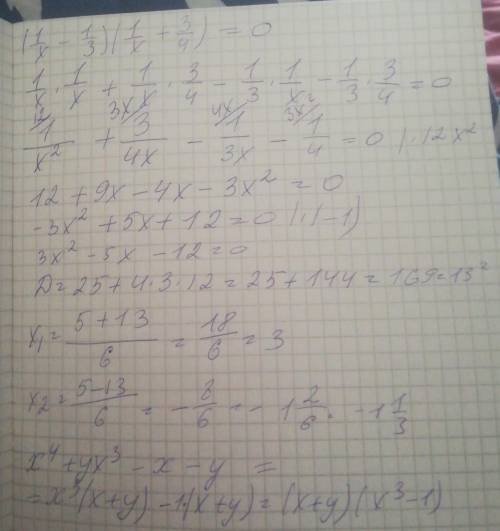 (1/x - 1/3)(1/x + 3/4) = 0
1/x · 1/x + 1/x · 3/4 - 1/3 · 1/x - 1/3 · 3/4 = 0
12/ 3x/ 4x/ 3x²/
1/x² + 3/4x - 1/3x - 1/4 = 0 | · 12x²
12 + 9x - 4x - 3x² = 0
-3x² + 5x + 12 = 0 | · (-1)
3x² - 5x - 12 = 0
D = 25 + 4 · 3 · 12 = 25 + 144 = 169 = 13²
x₁ = 5+13/6 = 18/6 = 3
x₂ = 5-13/6 = - 8/6 = - 1 2/6 = -1 1/3
x⁴ + yx³ - x - y =
= x³(x+y) - 1(x+y) = (x+y)(x³-1)